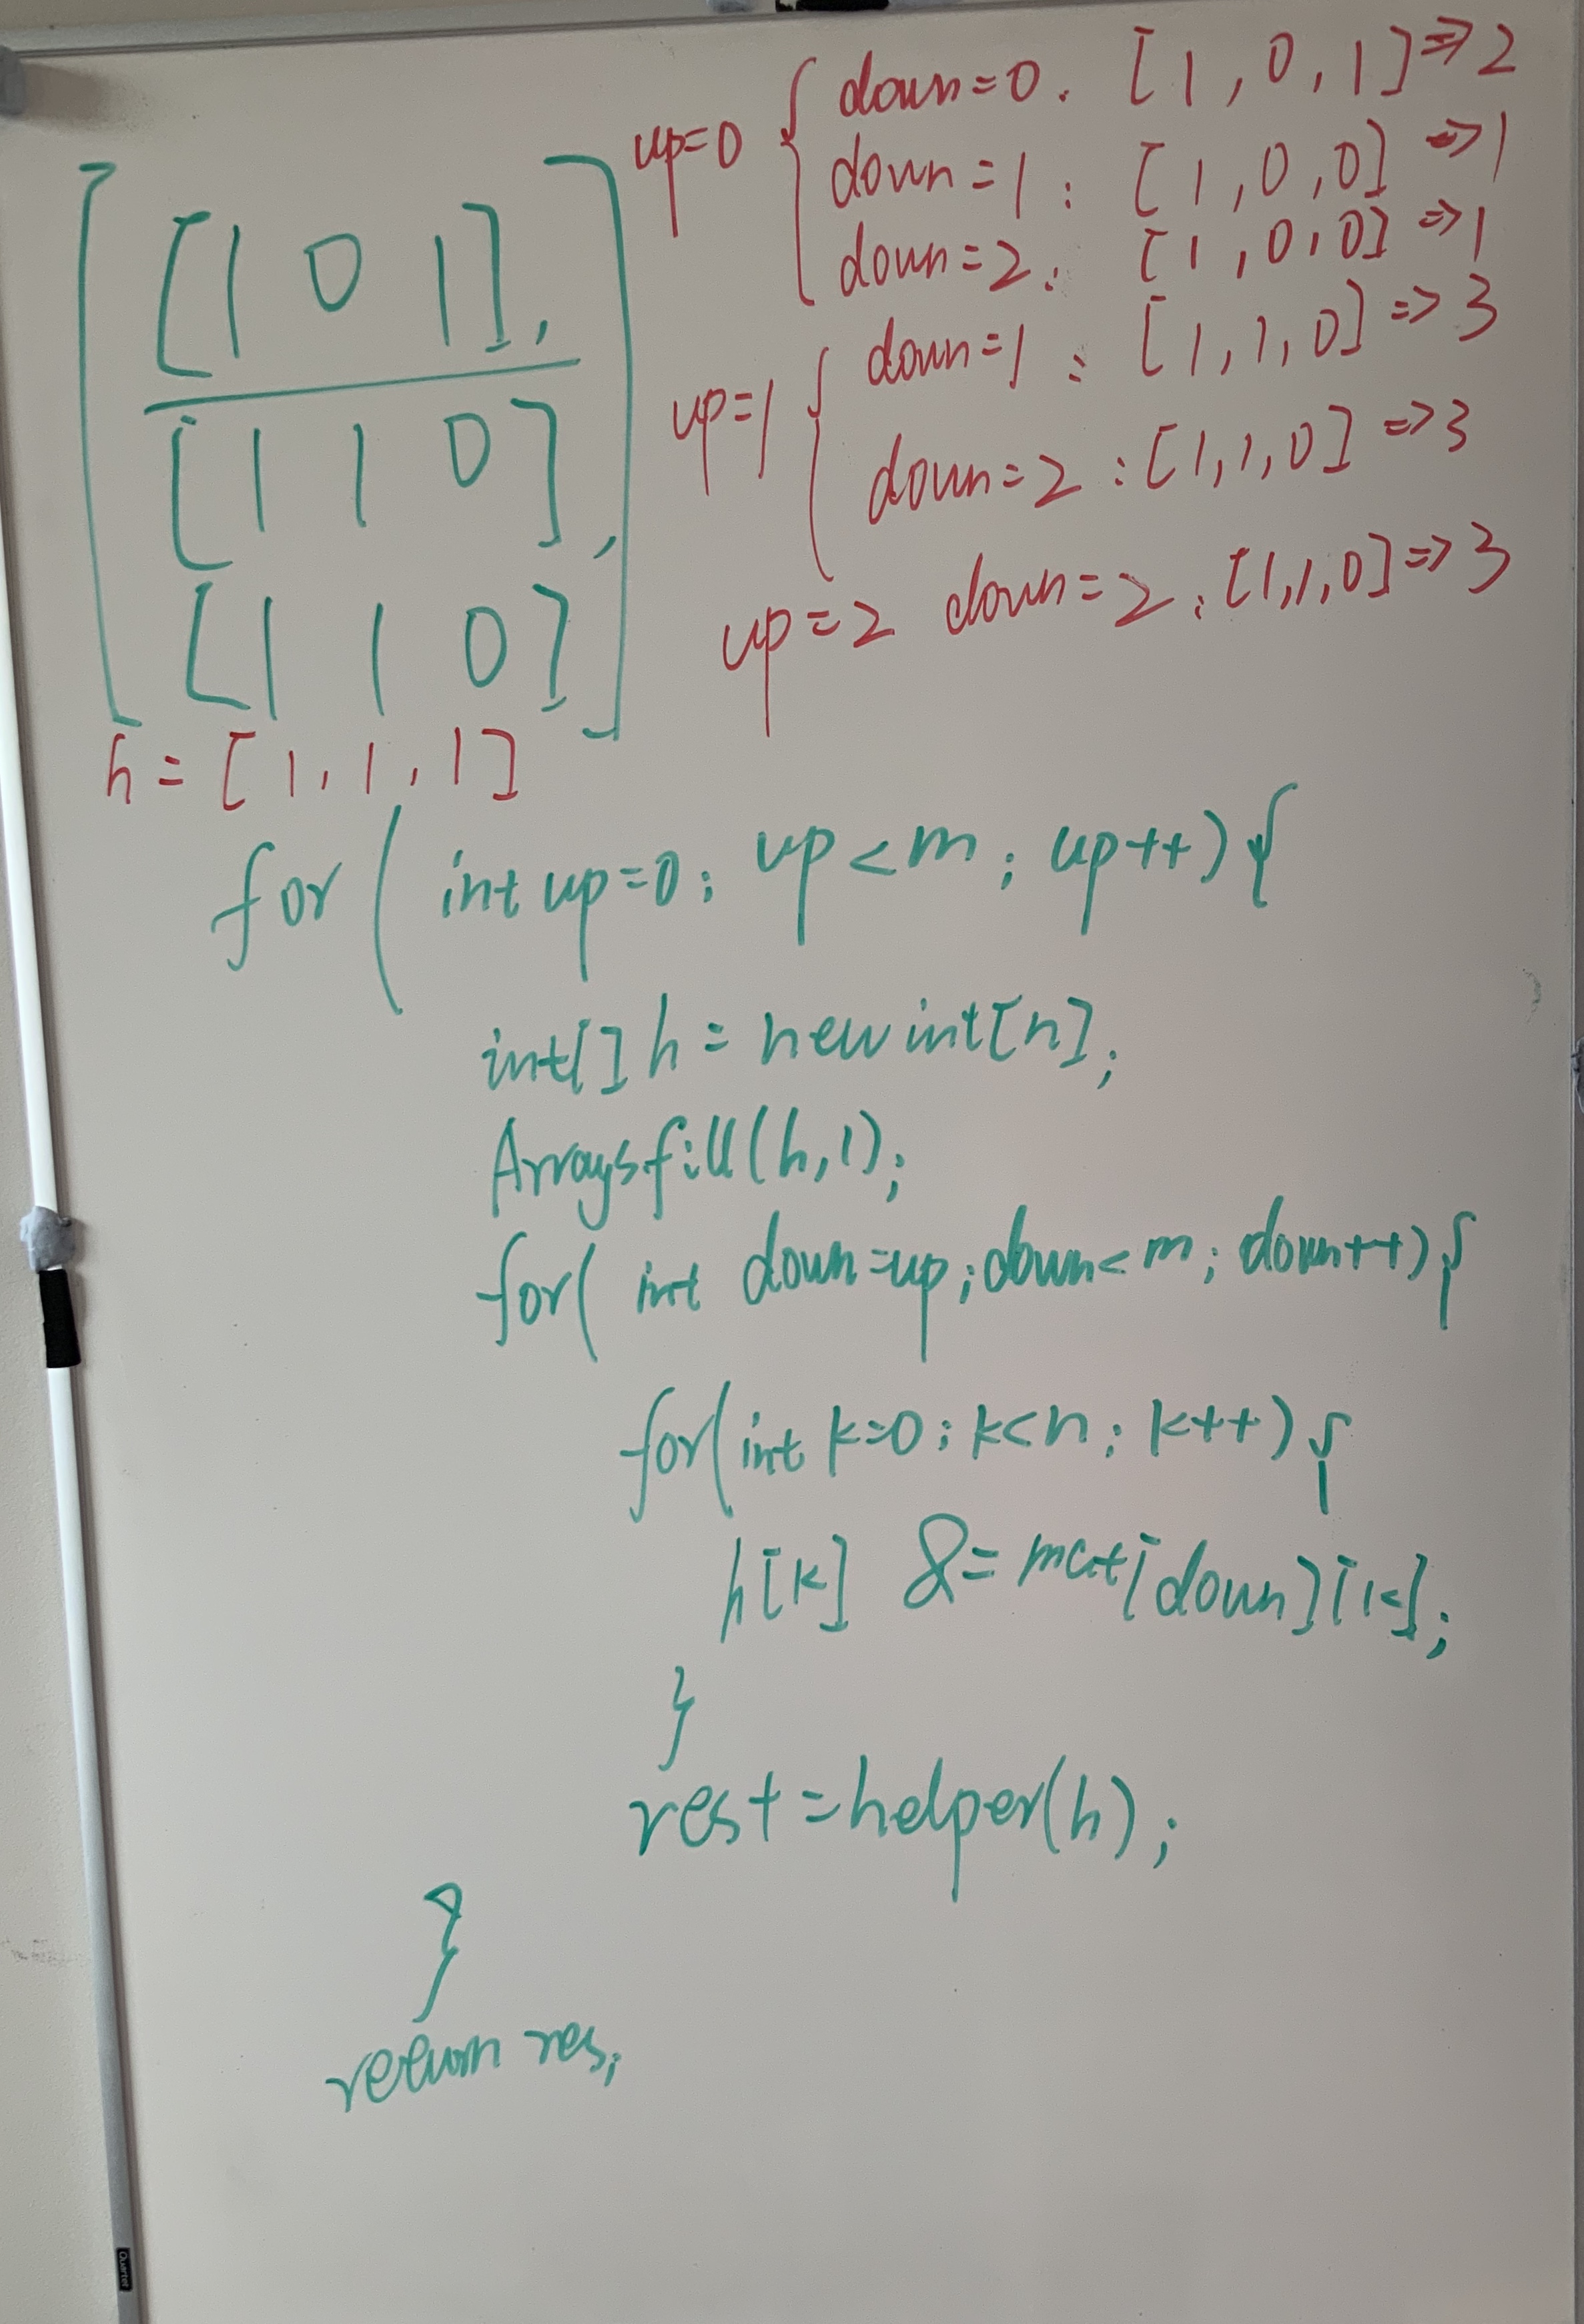 up=0 { down=0. [1,0,1] => 2
down=1 : [1,0,0] => 1
down=2 : [1,0,0] => 1
up=1 { down=1 : [1,1,0] => 3
down=2 : [1,1,0] => 3
up=2 down=2 : [1,1,0] => 3
[ [1 0 1],
[1 1 0],
[1 1 0] ]
h = [1,1,1]
for ( int up=0; up<m; up++) {
int[] h = new int[n];
Arrays.fill(h,1);
for( int down=up; down<m; down++) {
for(int k=0; k<n; k++) {
h[k] &= mat[down][k];
}
res+=helper(h);
}
return res;
Quartet